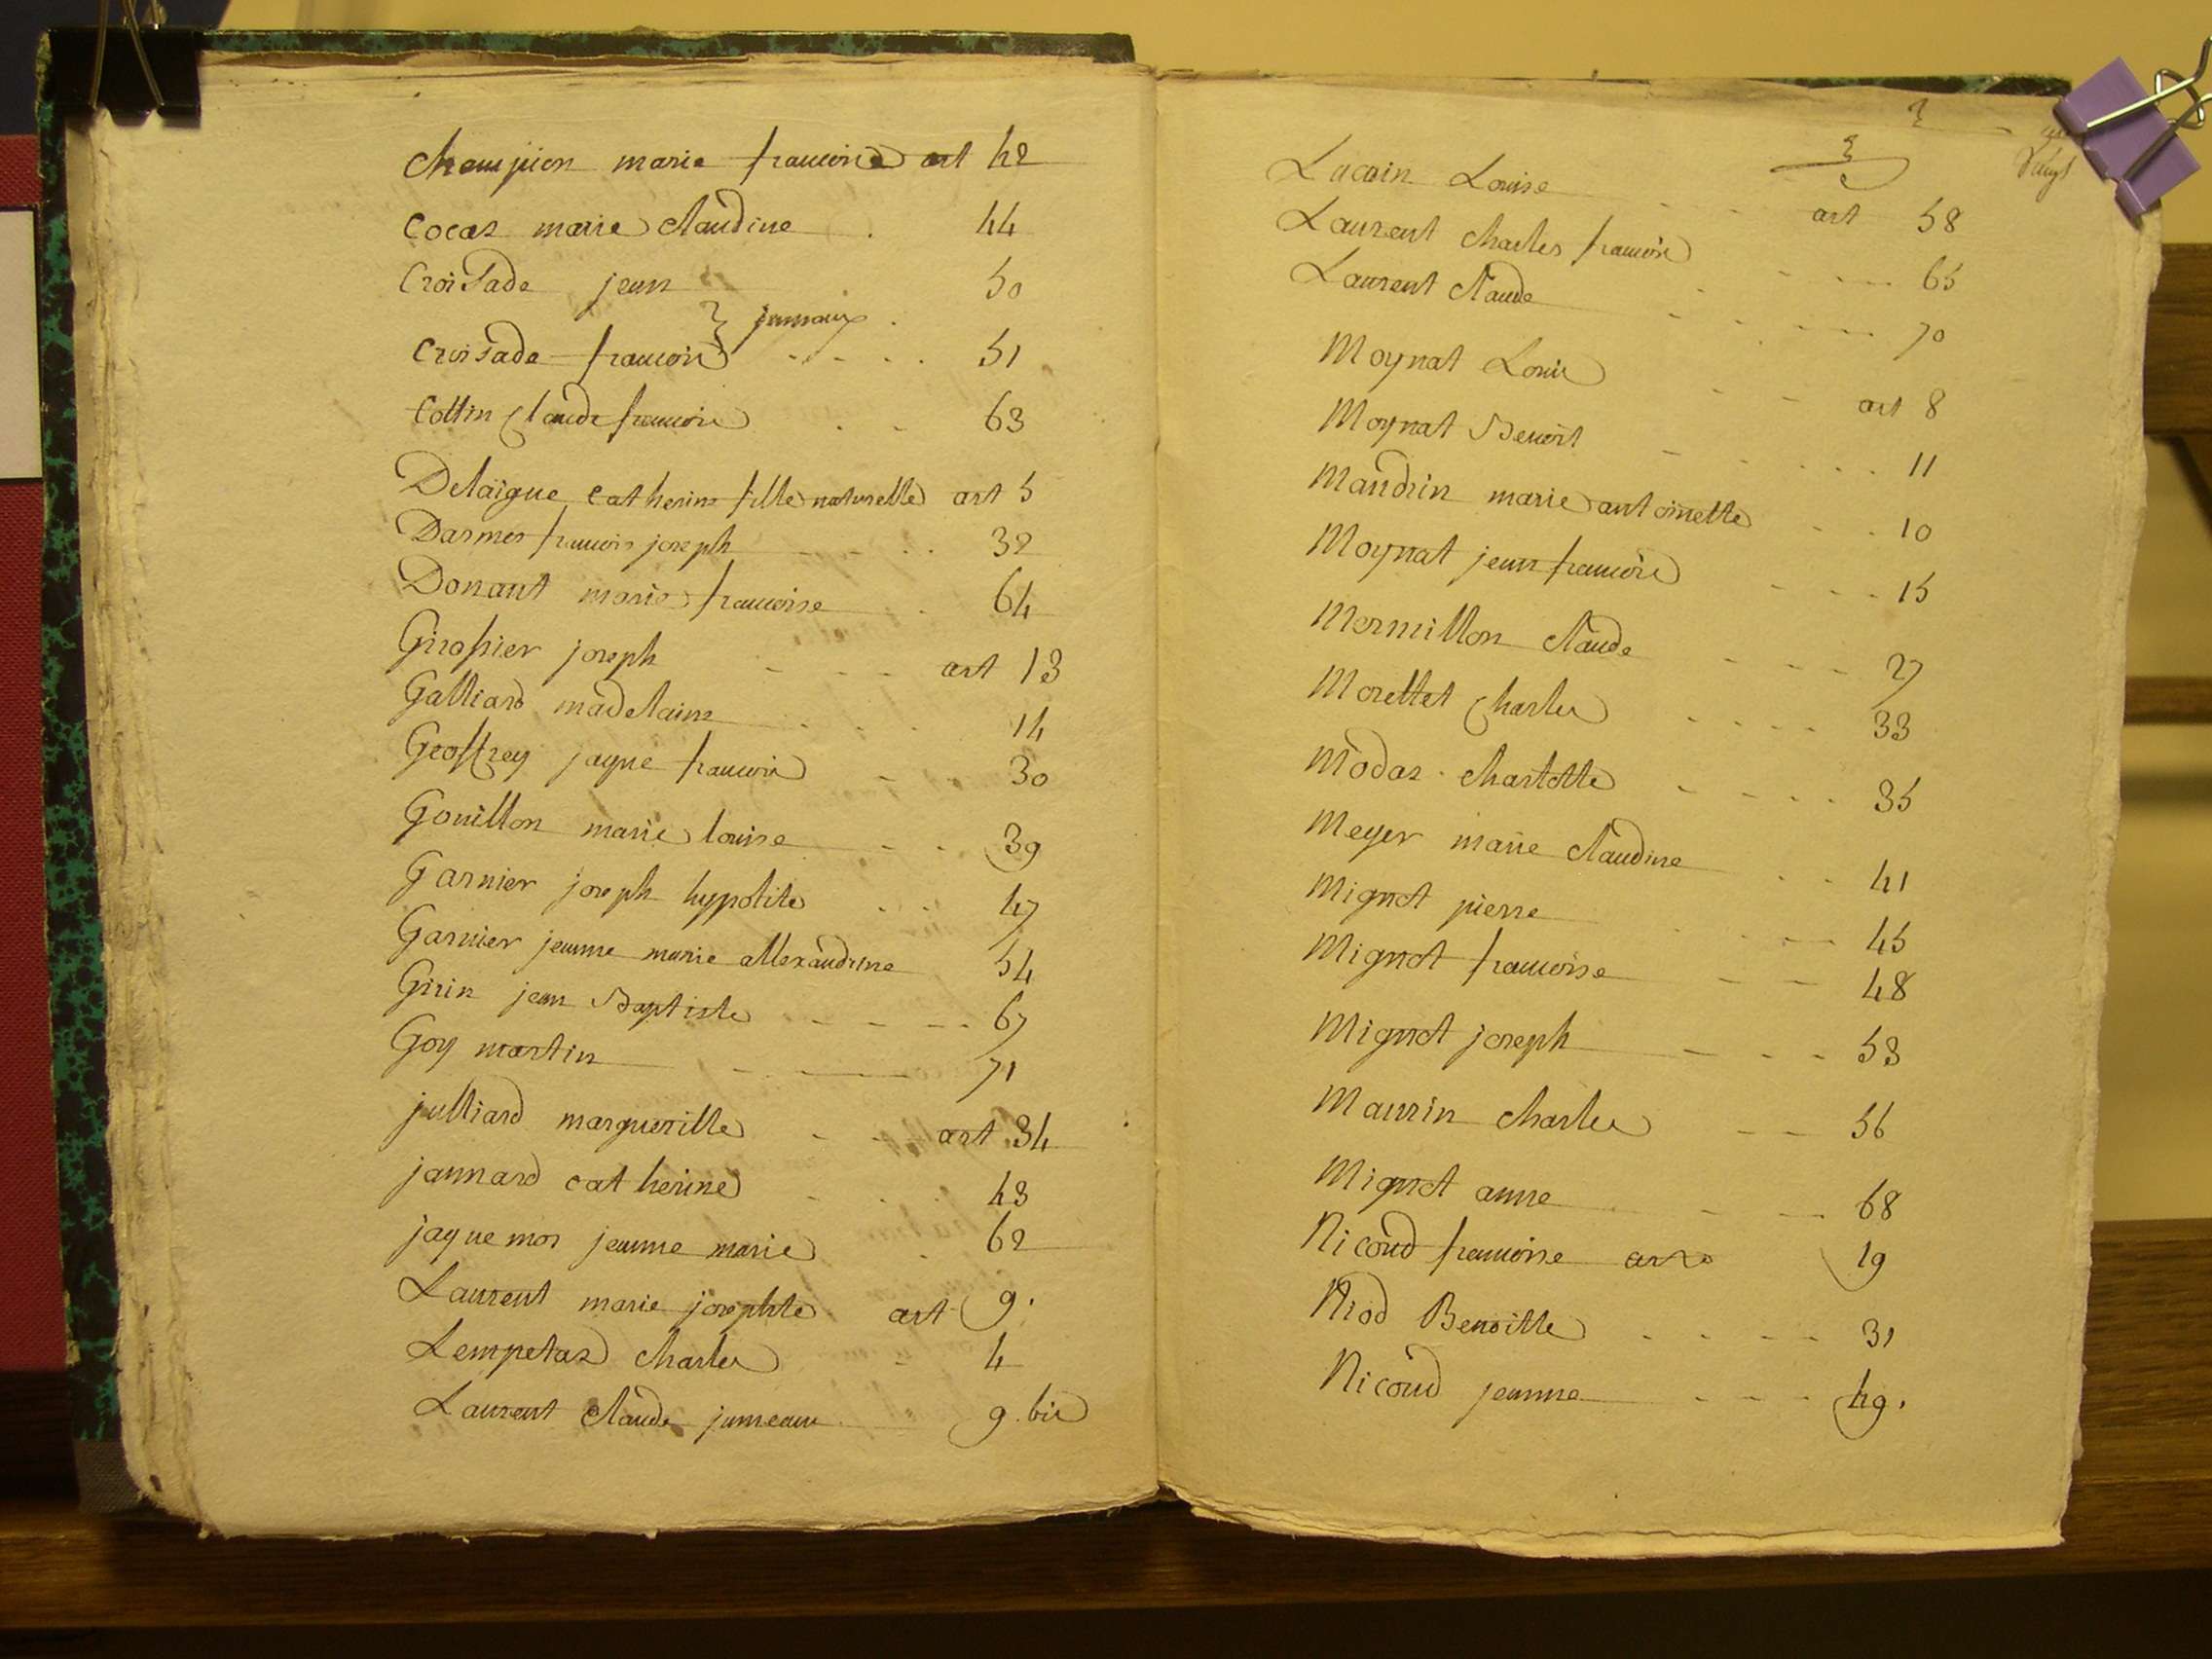 Champion marie francoise art 42
Cocaz marie Claudine 44
Croisade jean 50
jumaux
Croisade francois 51
Cottin Claude francois 63
Delaigue Catherine fille naturelle art 5
Darmes francois joseph 32
Donant marie francoise 64
Girossier joseph art 13
Galliard madelaine 14
Geoffrey jaque francois 30
Gouillon marie louise 39
Garnier joseph hyppolite 47
Garnier jeanne marie allexandrine 54
Girin jean Baptiste 67
Goy martin 71
julliard margueritte art 34
jannard catherine 43
jaquemos jeanne marie 62
Laurent marie josephte art 9.
Lempetaz Charles 4
Laurent Claude jumeau 9. bis
3
Lacoin Louise art 58
Laurent Charles francois 65
Laurent Claude 70
Moynat Louis art 8
Moynat Benoit 11
Mandrin marie antoinette 10
Moynat jean francois 15
Mermillon Claude 27
Morettet Charles 33
Modaz Charlotte 35
Meyer marie Claudine 41
Mignot pierre 45
Mignot francoise 48
Mignot joseph 53
Maurin Charles 56
Mignot anne 68
Nicoud francoise art 19
Niod Benoitte 31
Nicoud jeanne 49.